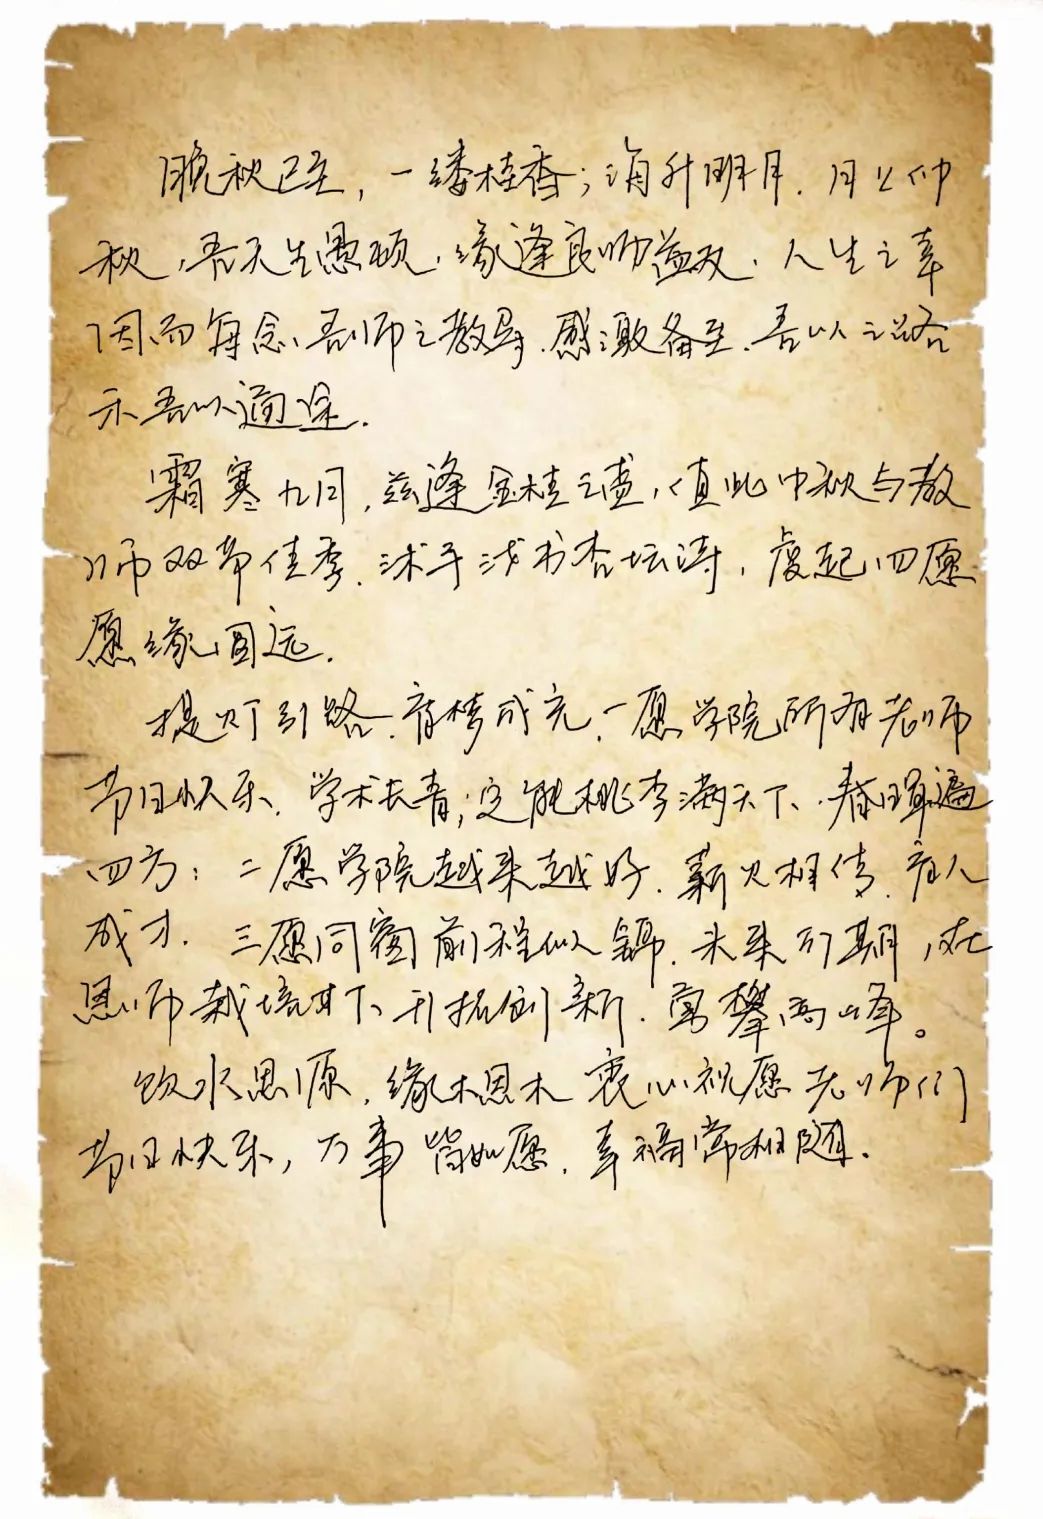 晚秋已至，一缕桂香；海升明月，月公仲
秋，吾天生愚顽，缘逢良师益友，人生之幸
因而每念吾师之教导，感激备至，吾以之路
示吾以通途.
霜寒九月，兹逢金桂之盛，值此中秋与教
师双节佳季，沐手浅书杏坛涛，虔起四愿
愿缘圆远.
提灯引路，育梦成光，一愿学院所有老师
节日快乐、学术长青；定能桃李满天下、春晖遍
四方：二愿学院越来越好，薪火相传，育人
成才. 三愿同窗前程似锦，未来可期，在
恩师栽培其下开拓创新，勇攀高峰。
饮水思源，缘木思木 衷心祝愿老师们
节日快乐，万事皆如愿，幸福常相随.